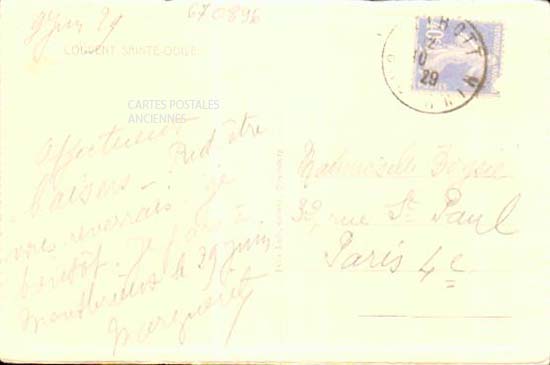 9 Juin 29
670896
COUVENT SAINTE-ODILE
CARTES POSTALES
ANCIENNES
Affectueux
baisers – Peut être
vous reverrais je
bientôt. Je pars à
le 29 juin
Marguerite
Mademoiselle
32, rue St Paul
Paris 4e
40
12
10
29